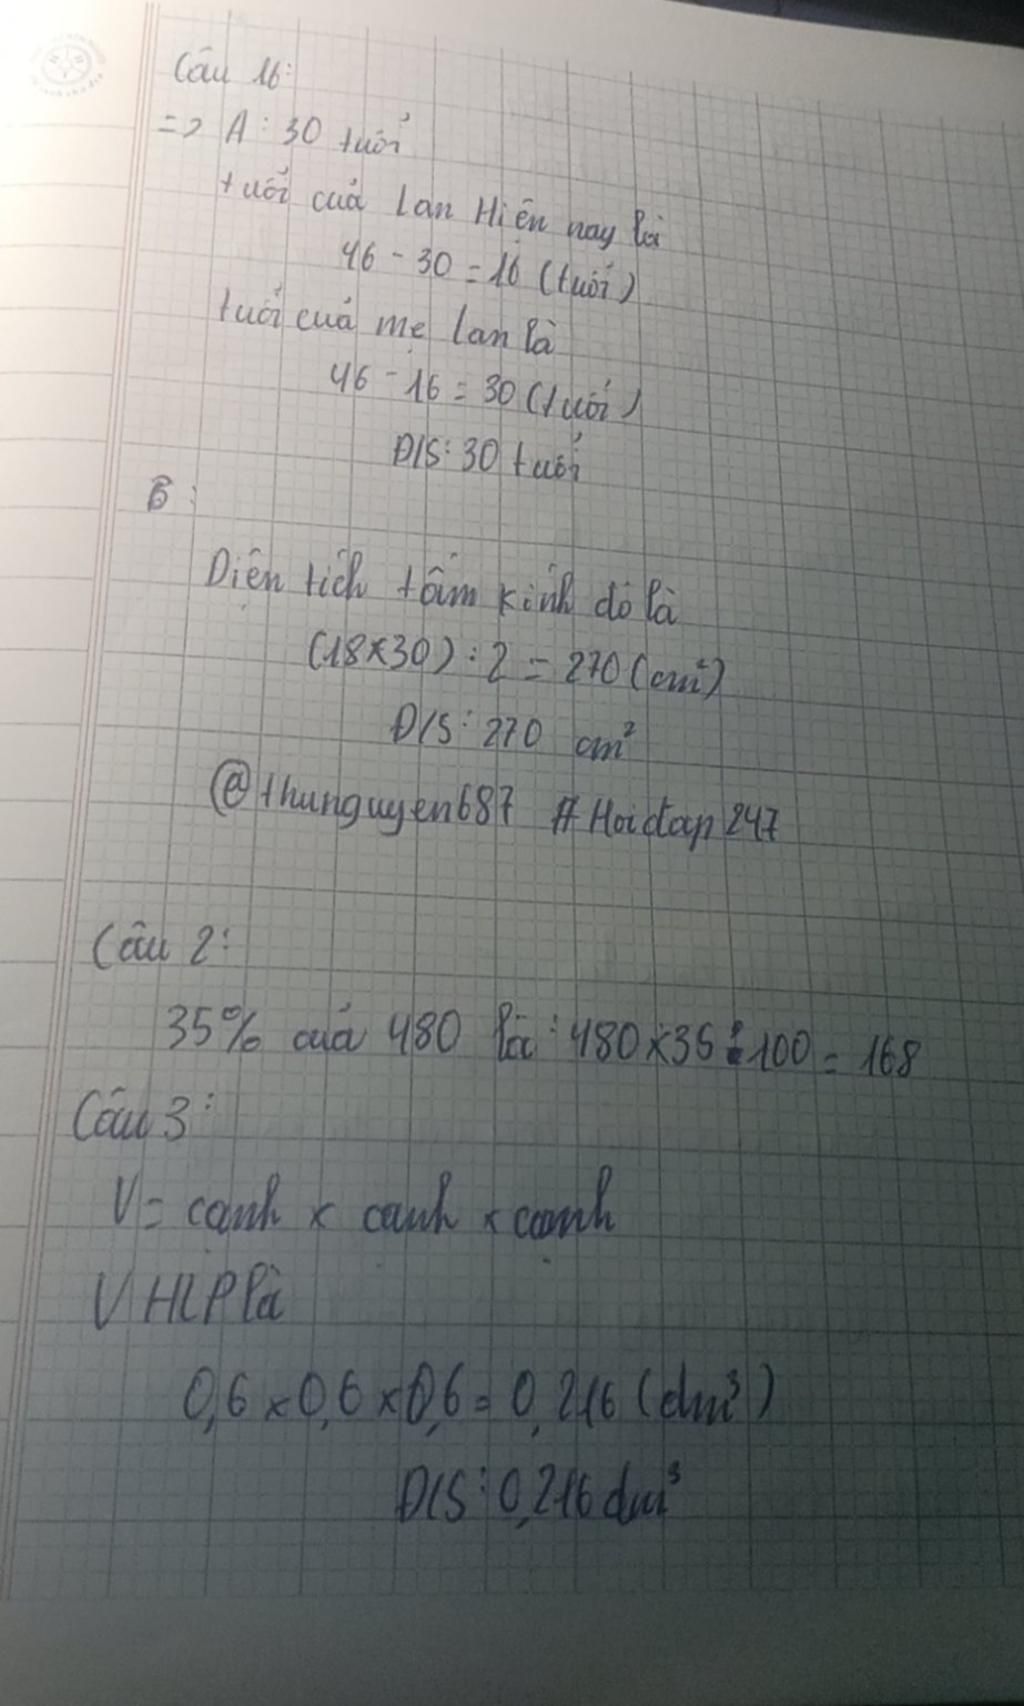 Câu 16:
=> A: 30 tuổi
tuổi của Lan Hiện nay là
46 - 30 = 16 (tuổi)
tuổi của mẹ lan là
46 - 16 = 30 (tuổi)
Đ/S: 30 tuổi
B:
Diện tích tấm kính đó là
(18×30) : 2 = 270 (cm²)
Đ/S: 270 cm²
@thunguyen687 #Hoidap247
Câu 2:
35% của 480 là: 480×35:100 = 168
Câu 3:
V = cạnh × cạnh × cạnh
V HLP là
0,6 × 0,6 × 0,6 = 0,216 (dm³)
Đ/S: 0,216 dm³